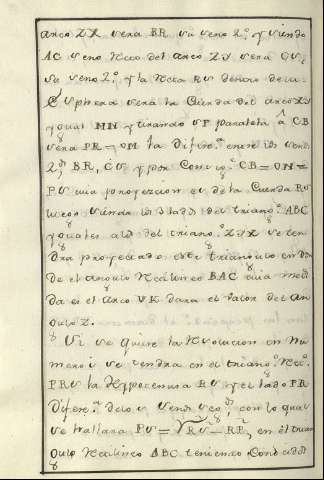 arco ZX sera BR su seno 2.º, y siendo
AC seno recto del arco ZY sera CV,
su seno 2.º, y la recta RV dentro de la
Esphera sera la Cuerda del arco
ygual MN y tirando VP paralela â CB
sera PR = OM la difer.ª entre los senos
2.dos BR, CV y por Con CB = OM =
PV una proyeccion es de la Cuerda RV
luego siendo los 3 lados del triang.º ABC
yguales a los del triang.º ZYX se ten
dra proyectado este triangulo en
de el angulo Rectilineo BAC cuia medi
da es el Arco VK dara el valor del An
gulo Z.
Si se quiere la resolucion en Nu
meros se tendra en el triang.º Rec.º
PRV la Hypotenusa RV y el lado PR
Difer.ª de los senos seg.dos, con lo qual
se hallara PV = √RV² − RP², en el trian
gulo rectilineo ABC teniendo Conocidos